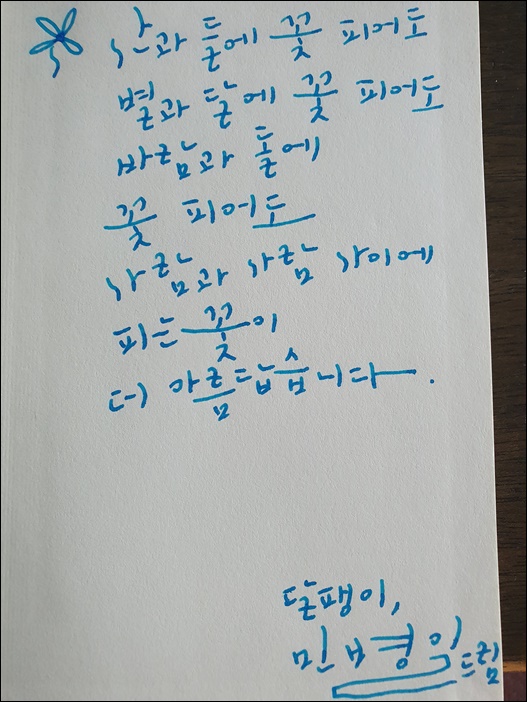 산과 들에 꽃 피어도
별과 달에 꽃 피어도
바람과 돌에
꽃 피어도
사람과 사람 사이에
피는 꽃이
더 아름답습니다.
달팽이,
민병일
드림